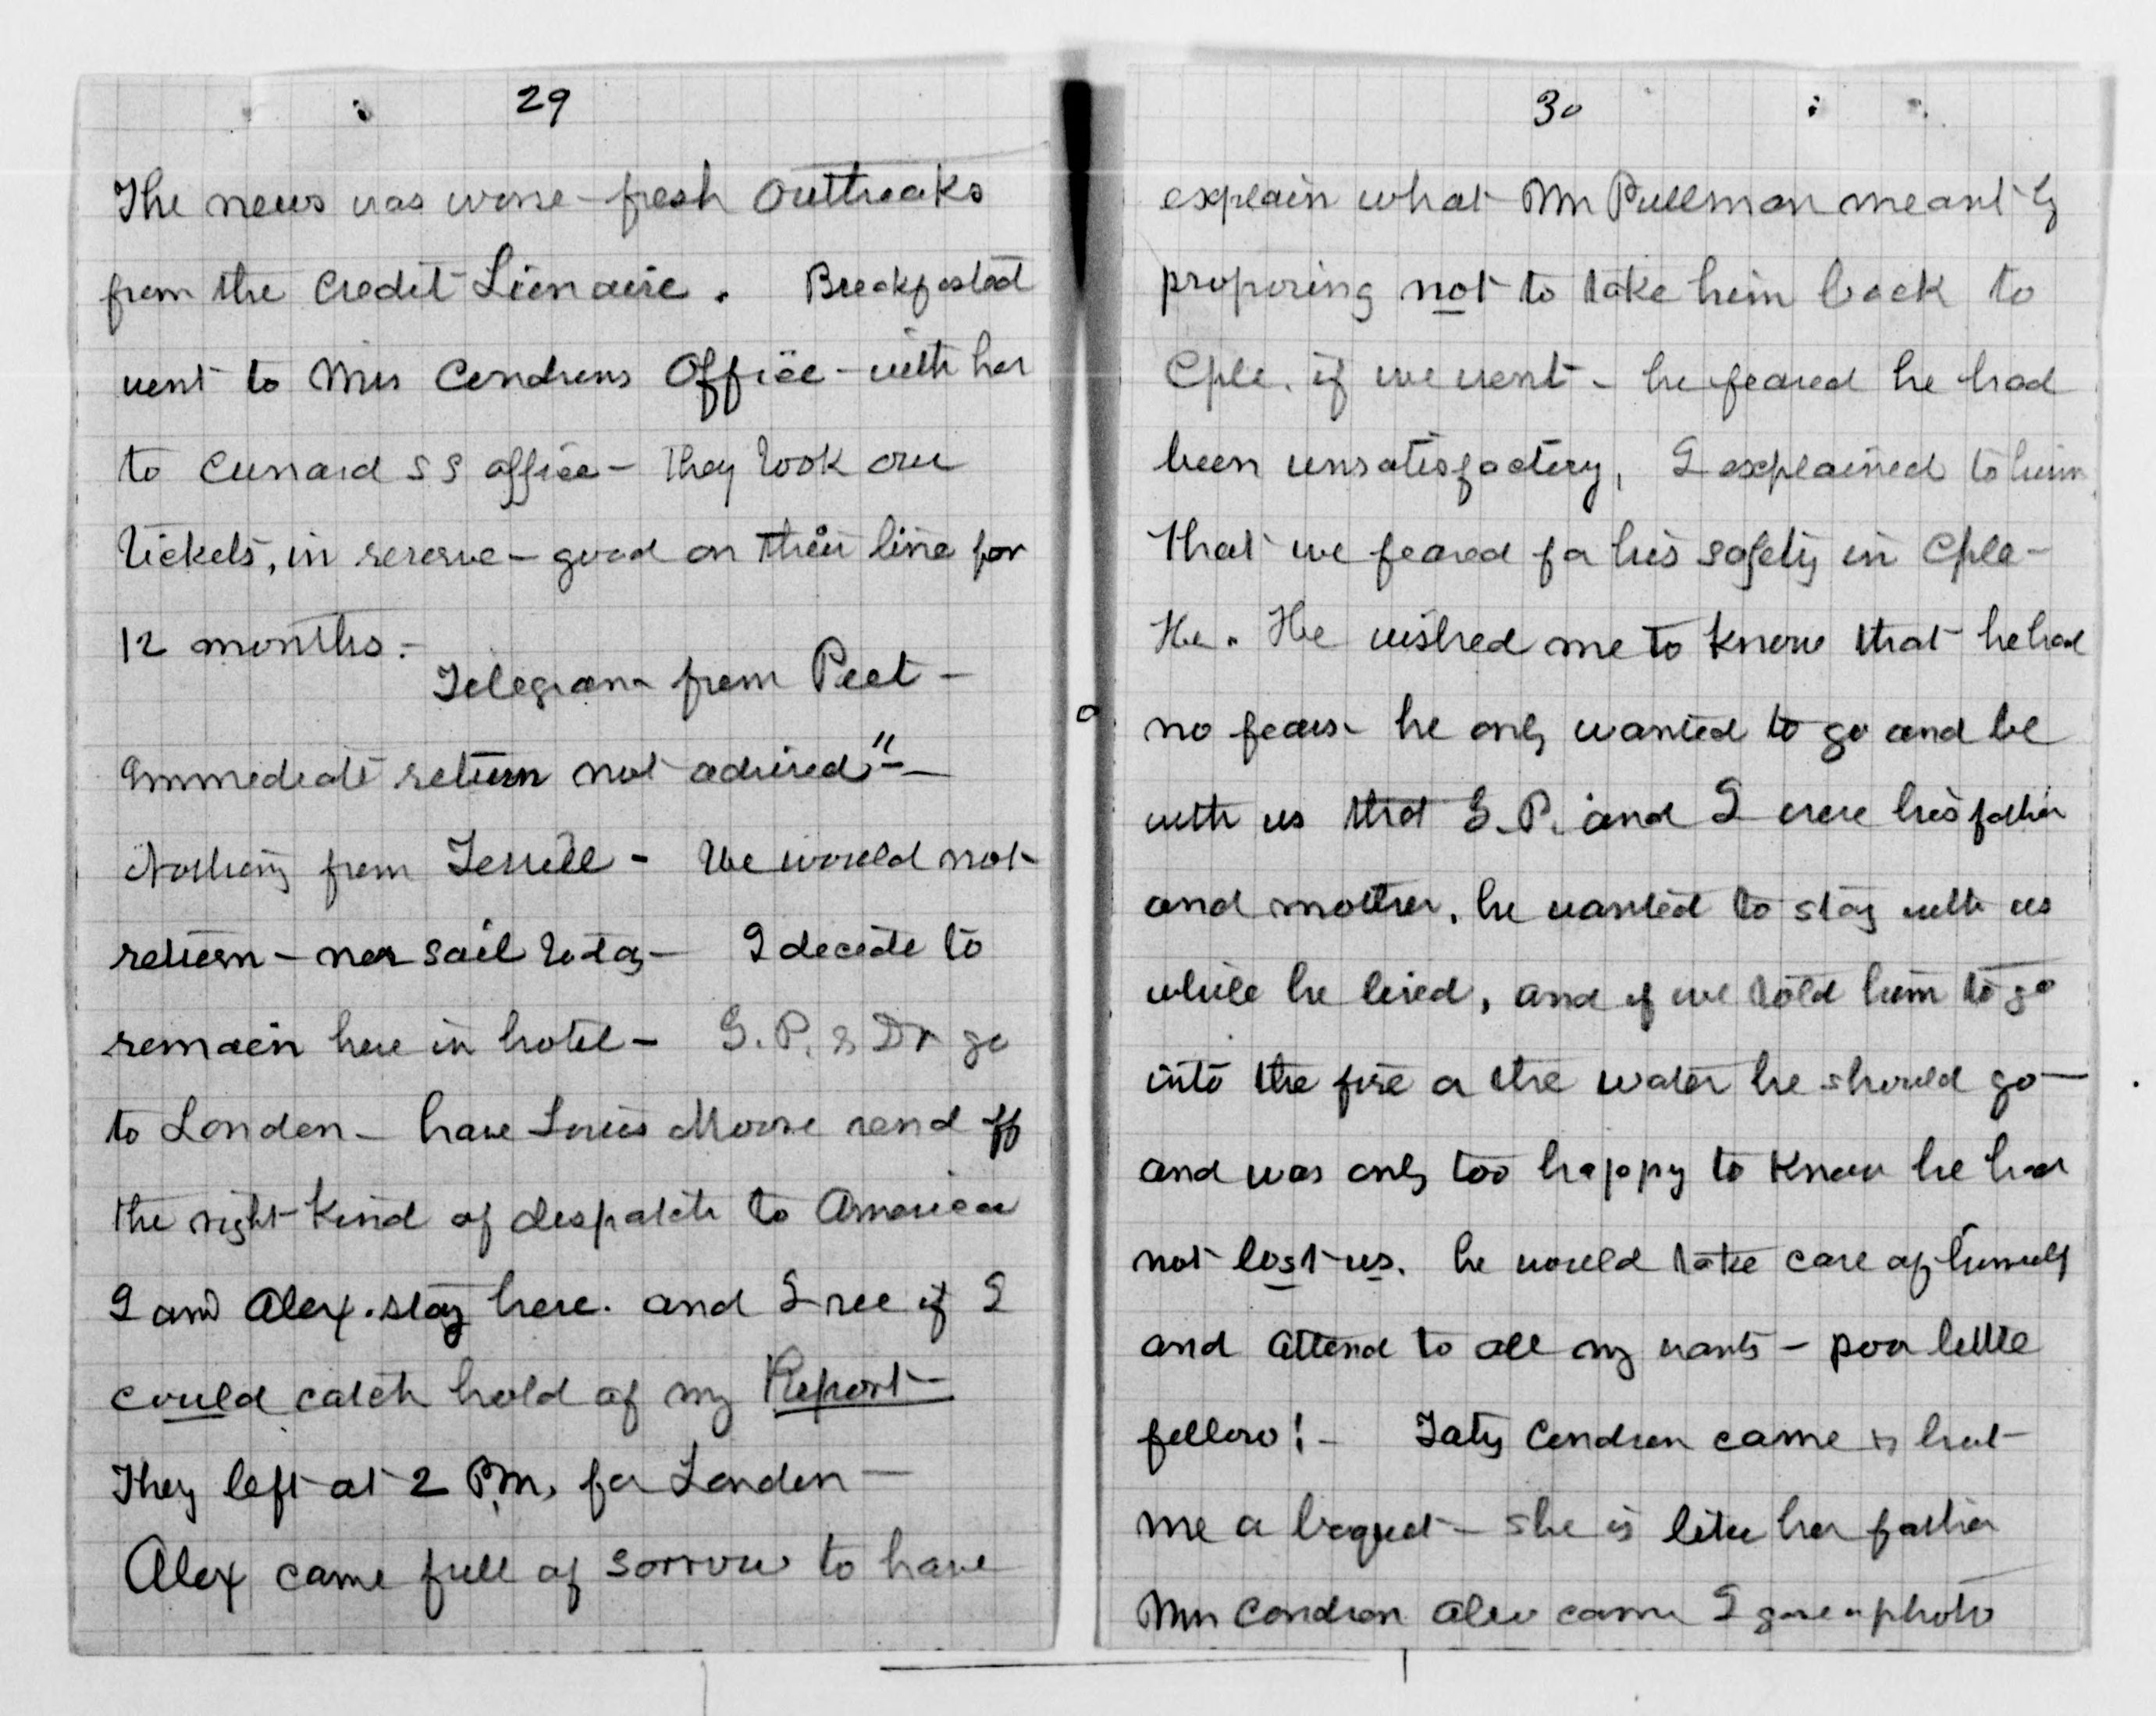 29
The news was worse - fresh outbreaks
from the Credit Lionaire. Breakfasted
went to Mrs Condrons Office - with her
to Cunard SS office - They took our
tickets, in reserve - good on their line for
12 months. -
Telegram from Peet -
Immediate return not advised" -
Nothing from Terrell - We would not
return - nor sail today - I decide to
remain here in hotel - G. P. & Dr go
to London - have Louis Moore send off
the right kind of despatch to America
I and Alex. stay here. and I see if I
could catch hold of my Report -
They left at 2 P.M. for London -
Alex came full of sorrow to have
30
explain what Mr Pullman meant by
proposing not to take him back to
Cple. if we went - he feared he had
been unsatisfactory, I explained to him
that we feared for his safety in Cple -
He. He wished me to know that he had
no fears - he only wanted to go and be
with us that G. P. and I were his father
and mother, he wanted to stay with us
while he lived, and if we told him to go
into the fire or the water he should go -
and was only too happy to know he had
not lost us. he would take care of himself
and attend to all my wants - poor little
fellow! - Taty Condron came &
me a boquet - she is like her father
Mrs Condron also came I gave a photo